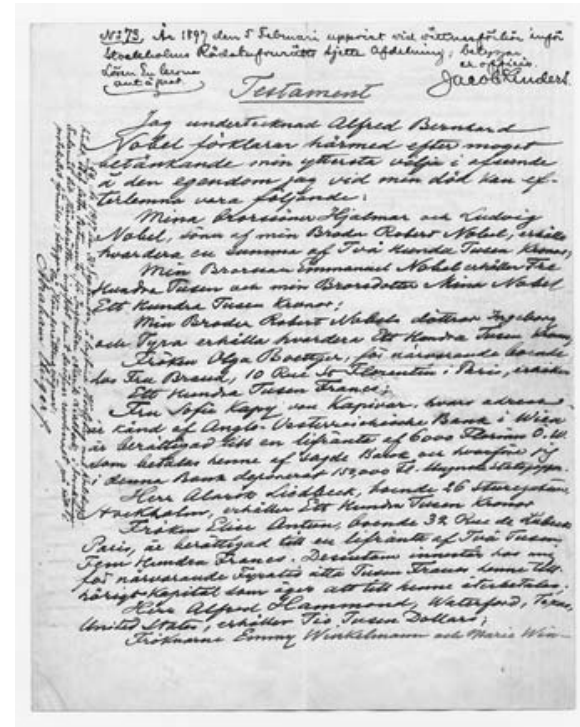 No 73. År 1897 den 5 Februari uppvist vid vittnesförhör inför
Stockholms Rådstufvurätts sjette Afdelning; betygar
Lösen En krona
ex officio.
Jacob Linders.
Testament
Jag undertecknad Alfred Bernhard
Nobel förklarar härmed efter moget
betänkande min yttersta vilja i afseende
å den egendom jag vid min död kan ef-
terlemna vara följande:
Mina Brorsöner Hjalmar och Ludvig
Nobel, söner af min Broder Robert Nobel, erhålla
hvardera en summa af Två Hundra Tusen Kronor;
Min Brorson Emmanuel Nobel erhåller Tre
Hundra Tusen och min Brorsdotter Mina Nobel
Ett Hundra Tusen Kronor;
Min Broder Robert Nobels döttrar Ingeborg
och Tyra erhålla hvardera Ett Hundra Tusen Kronor;
Fröken Olga Boettger, för närvarande boende
hos Fru Brand, 10 Rue St Florentin i Paris, erhåller
Ett Hundra Tusen Francs;
Fru Sofie Kapy von Kapivar, hvars adress
är känd af Anglo-Oesterreichische Bank i Wien
är berättigad till en lifränta af 6000 Florins Ö.W.
som betalas henne af sagde Bank och hvarför jag
i denna Bank deponerat 150,000 Fl. i Ungerska statspapper.
Herr Alarik Liedbeck, boende 26 Sturegatan,
Stockholm, erhåller Ett Hundra Tusen Kronor
Fröken Elise Antun, boende 32 Rue de Lubeck
Paris, är berättigad till en lifränta af Två Tusen
Fem Hundra Francs. Dessutom innestår hos mig
för närvarande Fyratio åtta Tusen Francs henne till-
hörigt Kapital som äger att till henne återbetalas;
Herr Alfred Hammond, Waterford, Texas,
United States, erhåller Tio Tusen Dollars;
Fröknarne Emmy Winkelmann och Marie Win-